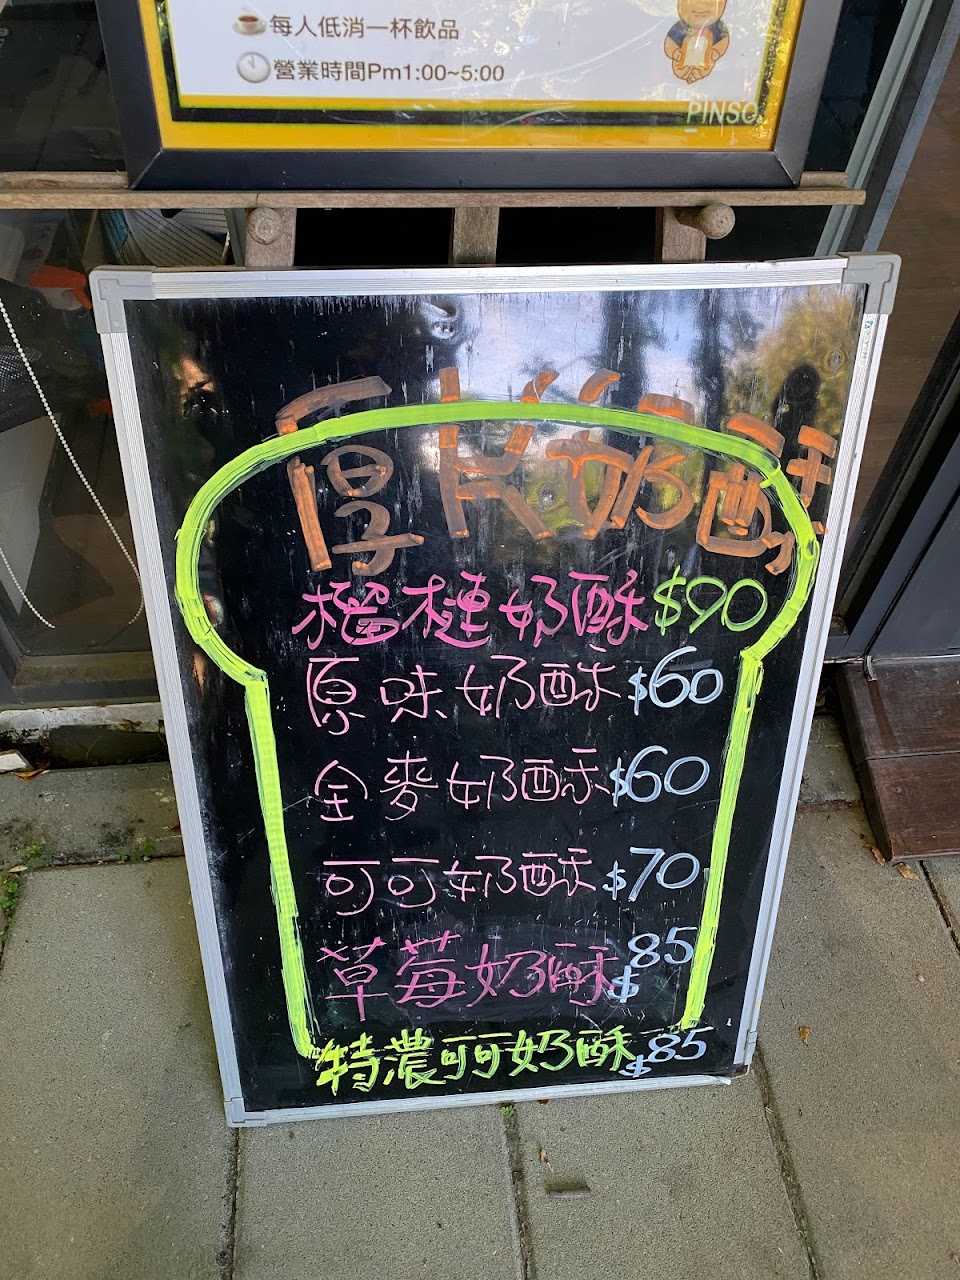 每人低消一杯飲品
營業時間Pm1:00~5:00
PINSO
厚片奶酥
榴槤奶酥$90
原味奶酥$60
全麥奶酥$60
可可奶酥$70
草莓奶酥$85
特濃可可奶酥$85